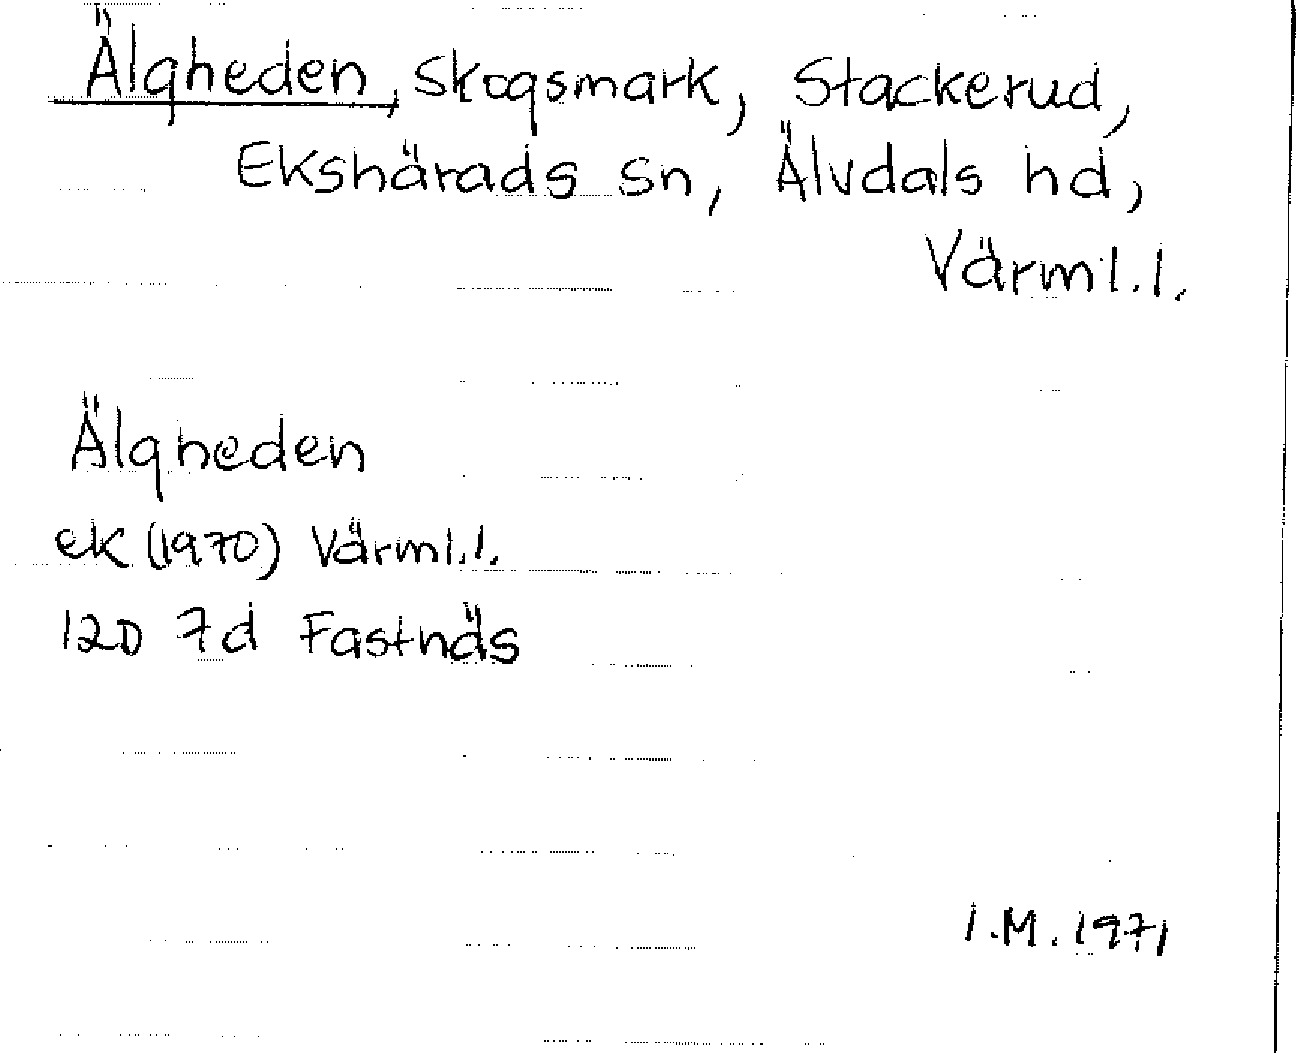 Älgheden, Skogsmark, Stackerud,
Ekshärads sn, Älvdals hd,
Värml.l.
Älgheden
ek (1970) Värml.l.
12D 7d Fastnäs
I.M. 1971